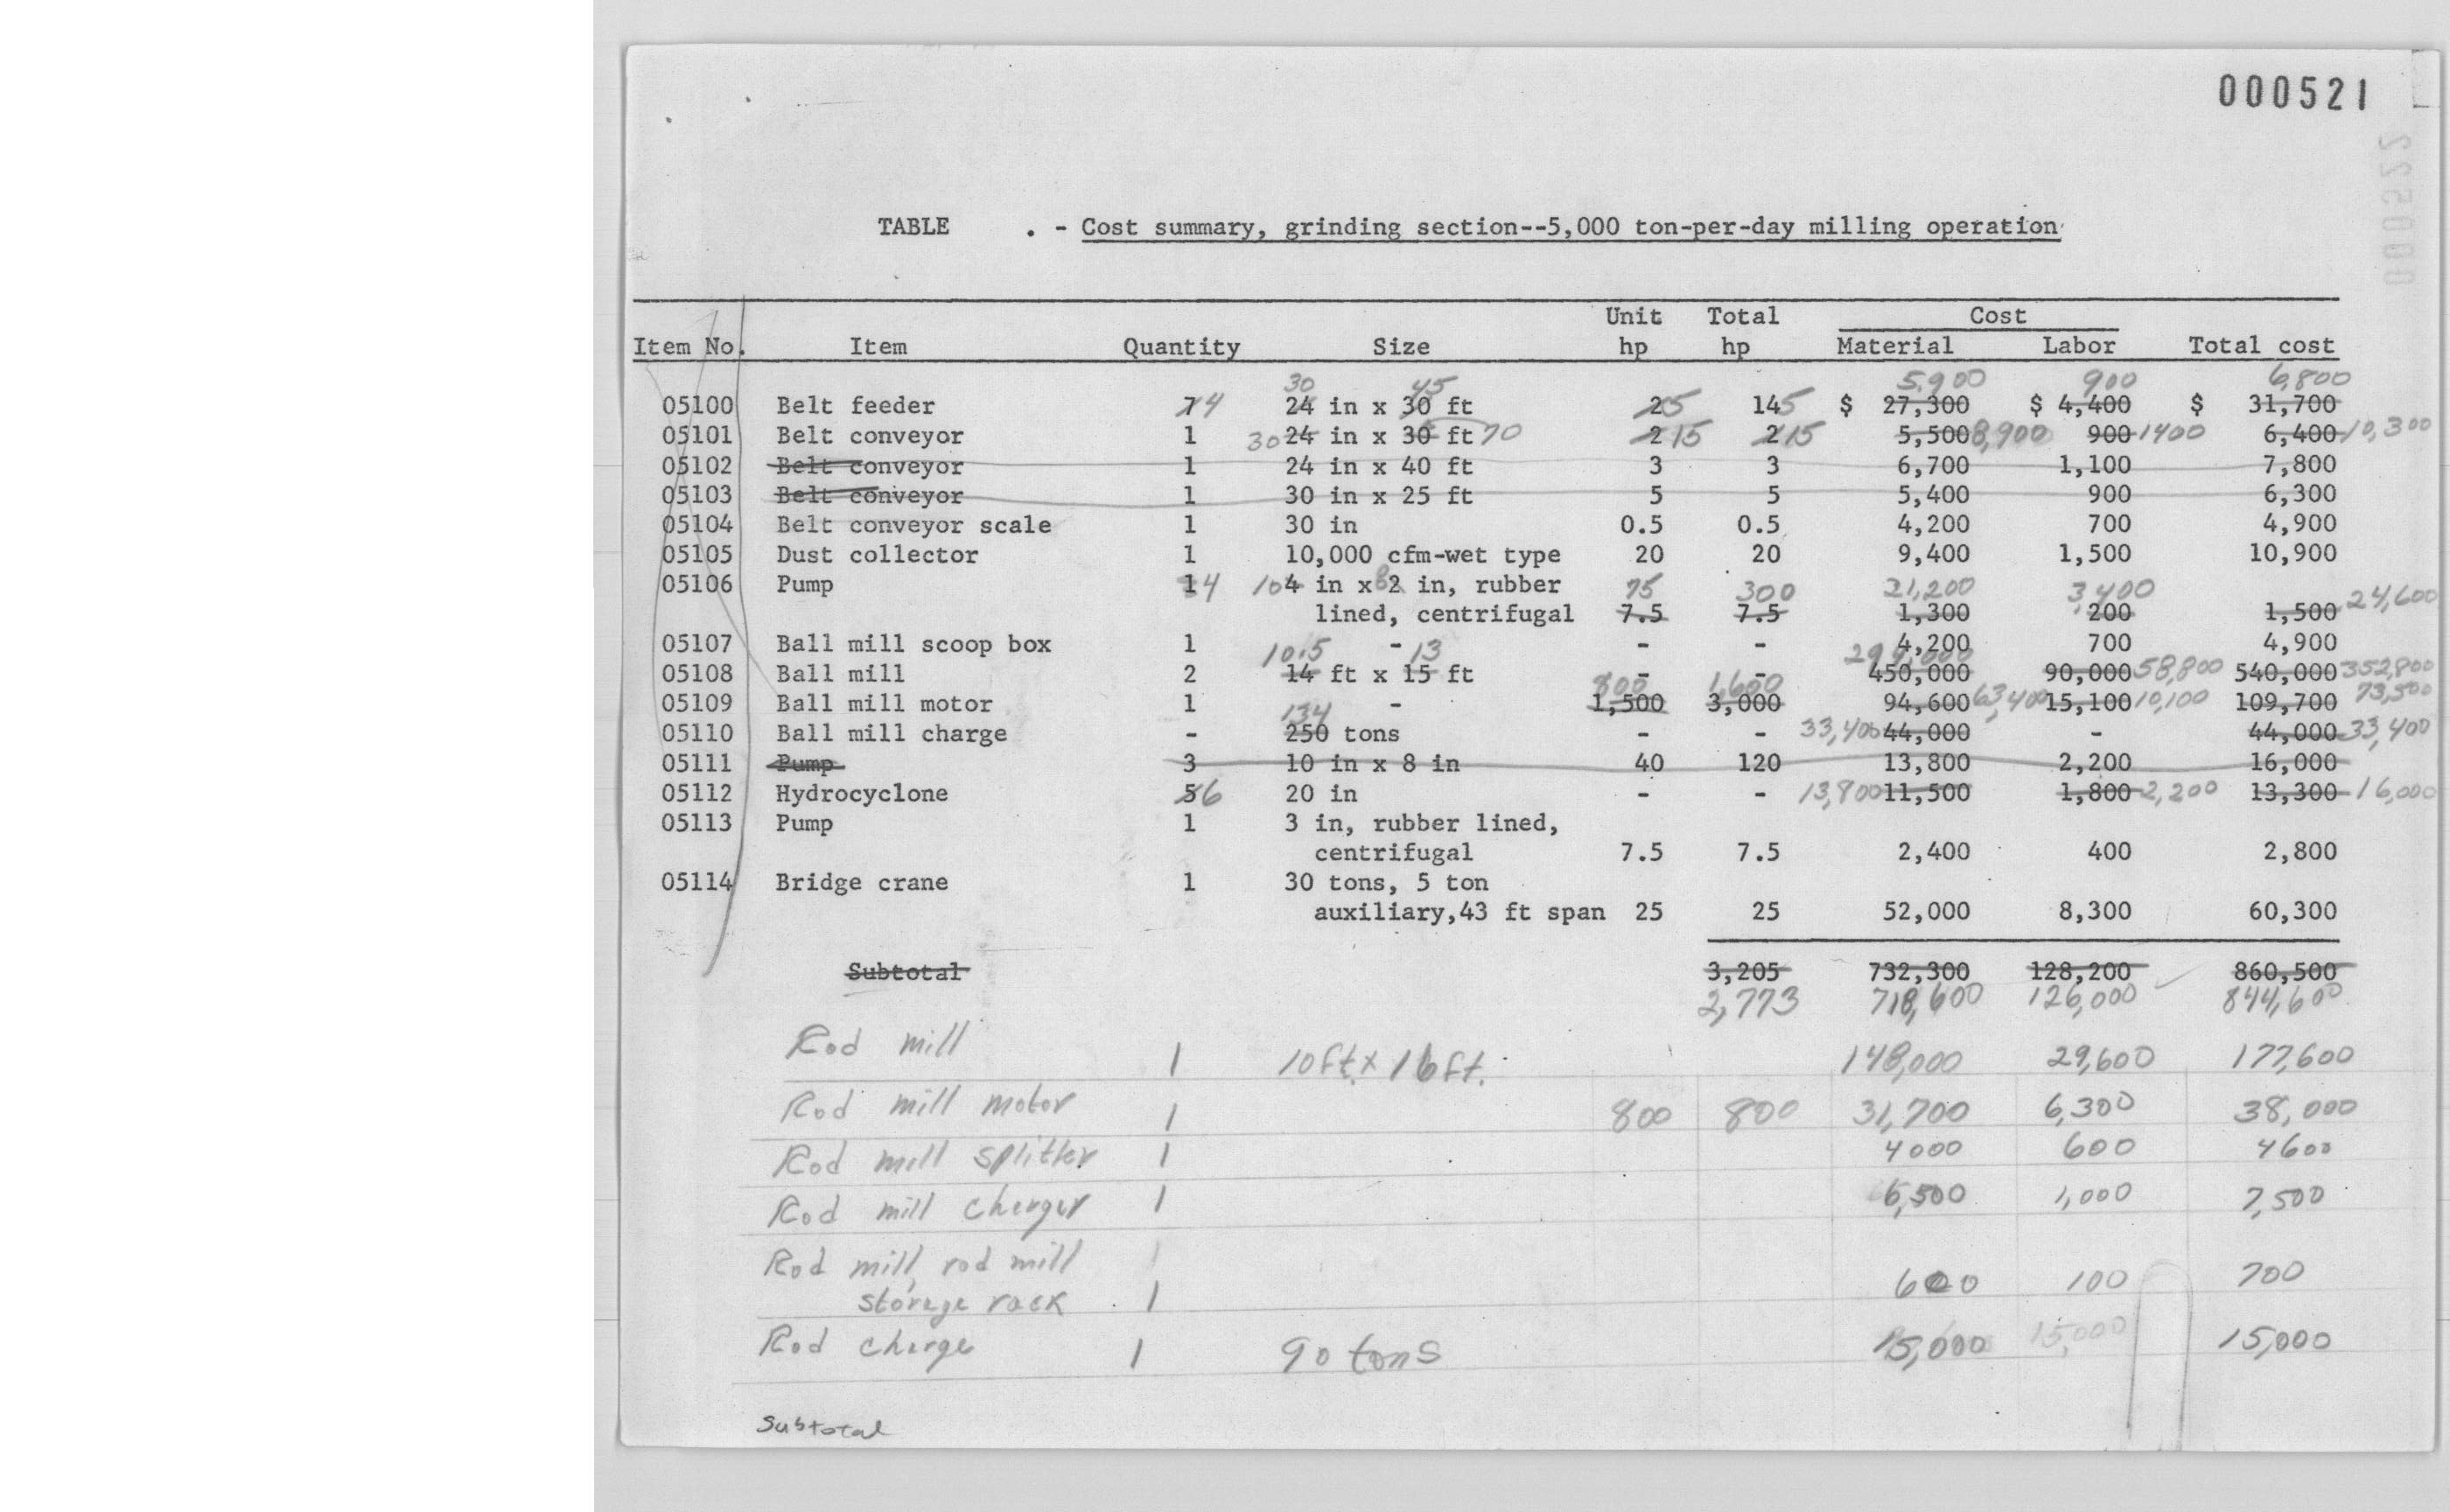 000521
TABLE . - Cost summary, grinding section--5,000 ton-per-day milling operation
Unit Total Cost
Item No. Item Quantity Size hp hp Material Labor Total cost
30 45 5,900 900 6,800
05100 Belt feeder 7 4 24 in x 30 ft 2 5 14 5 $ 27,300 $ 4,400 $ 31,700
05101 Belt conveyor 1 30 24 in x 30 ft 70 2 15 2 15 5,500 8,900 900 1400 6,400 10,300
05102 Belt conveyor 1 24 in x 40 ft 3 3 6,700 1,100 7,800
05103 Belt conveyor 1 30 in x 25 ft 5 5 5,400 900 6,300
05104 Belt conveyor scale 1 30 in 0.5 0.5 4,200 700 4,900
05105 Dust collector 1 10,000 cfm-wet type 20 20 9,400 1,500 10,900
05106 Pump 1 4 10 4 in x 8 2 in, rubber 75 300 21,200 3,400 24,600
lined, centrifugal 7.5 7.5 1,300 200 1,500
05107 Ball mill scoop box 1 - - - 4,200 700 4,900
10.5 13
05108 Ball mill 2 14 ft x 15 ft - - 450,000 90,000 58,800 540,000 352,800
800 1,600
05109 Ball mill motor 1 - 1,500 3,000 94,600 63,400 15,100 10,100 109,700 73,500
134
05110 Ball mill charge - 250 tons - - 33,400 44,000 - 44,000 33,400
05111 Pump 3 10 in x 8 in 40 120 13,800 2,200 16,000
05112 Hydrocyclone 5 6 20 in - - 13,800 11,500 1,800 2,200 13,300 16,000
05113 Pump 1 3 in, rubber lined,
centrifugal 7.5 7.5 2,400 400 2,800
05114 Bridge crane 1 30 tons, 5 ton
auxiliary,43 ft span 25 25 52,000 8,300 60,300
Subtotal 3,205 732,300 128,200 860,500
2,773 718,600 126,000 844,600
Rod mill 1 10ft. x 16ft. 148,000 29,600 177,600
Rod mill motor 1 800 800 31,700 6,300 38,000
Rod mill splitter 1 4000 600 4600
Rod mill charger 1 6,500 1,000 7,500
Rod mill, rod mill
storage rack 1 600 100 700
Rod charge 1 90 tons 15,000 15,000 15,000
Subtotal